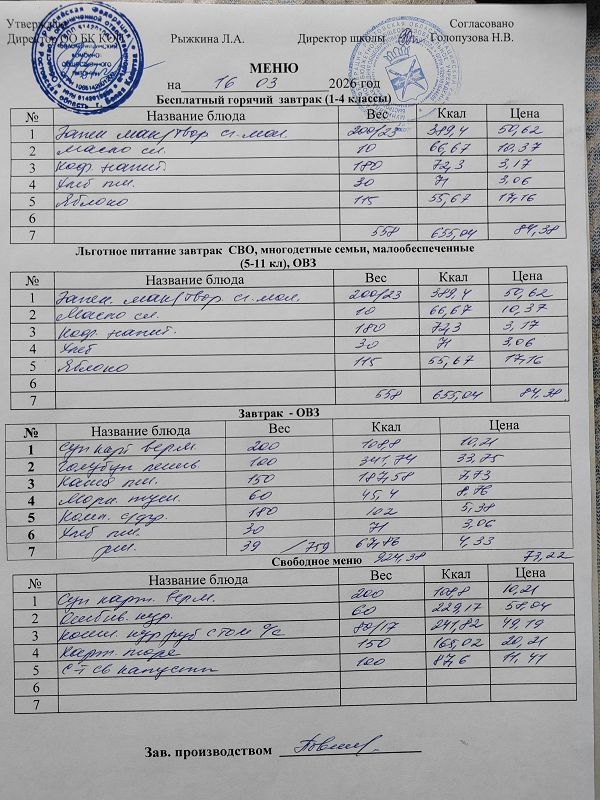 Утверждаю Согласовано
Директор ОО БК КОП Рыжкина Л.А. Директор школы Голопузова Н.В.
МЕНЮ
на 16 03 2026 год
Бесплатный горячий завтрак (1-4 классы)
№ Название блюда Вес Ккал Цена
1 Запек мак/твор сг.мол. 200/23 389,4 50,62
2 Масло сл. 10 66,67 10,37
3 Коф. напит. 180 72,3 3,17
4 Хлеб пш. 30 71 3,06
5 Яблоко 115 55,67 17,16
6
7 558 655,04 84,38
Льготное питание завтрак СВО, многодетные семьи, малообеспеченные
(5-11 кл), ОВЗ
№ Название блюда Вес Ккал Цена
1 Запек. мак/твор. сг.мол. 200/23 389,4 50,62
2 Масло сл. 10 66,67 10,37
3 Коф. напит. 180 72,3 3,17
4 Хлеб 30 71 3,06
5 Яблоко 115 55,67 17,16
6
7 558 655,04 84,38
Завтрак - ОВЗ
№ Название блюда Вес Ккал Цена
1 Суп карт верм. 200 108,8 10,21
2 Голубцы ленив. 100 341,74 33,75
3 Каша пш. 150 187,58 7,73
4 Морк. туш. 60 45,4 8,76
5 Комп. с/фр. 180 102 5,38
6 Хлеб пш. 30 71 3,06
7 39 /759 67,86 4,33
Свободное меню 924,38 73,22
№ Название блюда Вес Ккал Цена
1 Суп карт. верм. 200 108,8 10,21
2 кур. 60 229,17 58,04
3 кур руб с том 80/17 241,82 49,19
4 Карт. пюре 150 165,02 20,21
5 С-т св капусты 100 87,6 11,41
6
7
Зав. производством